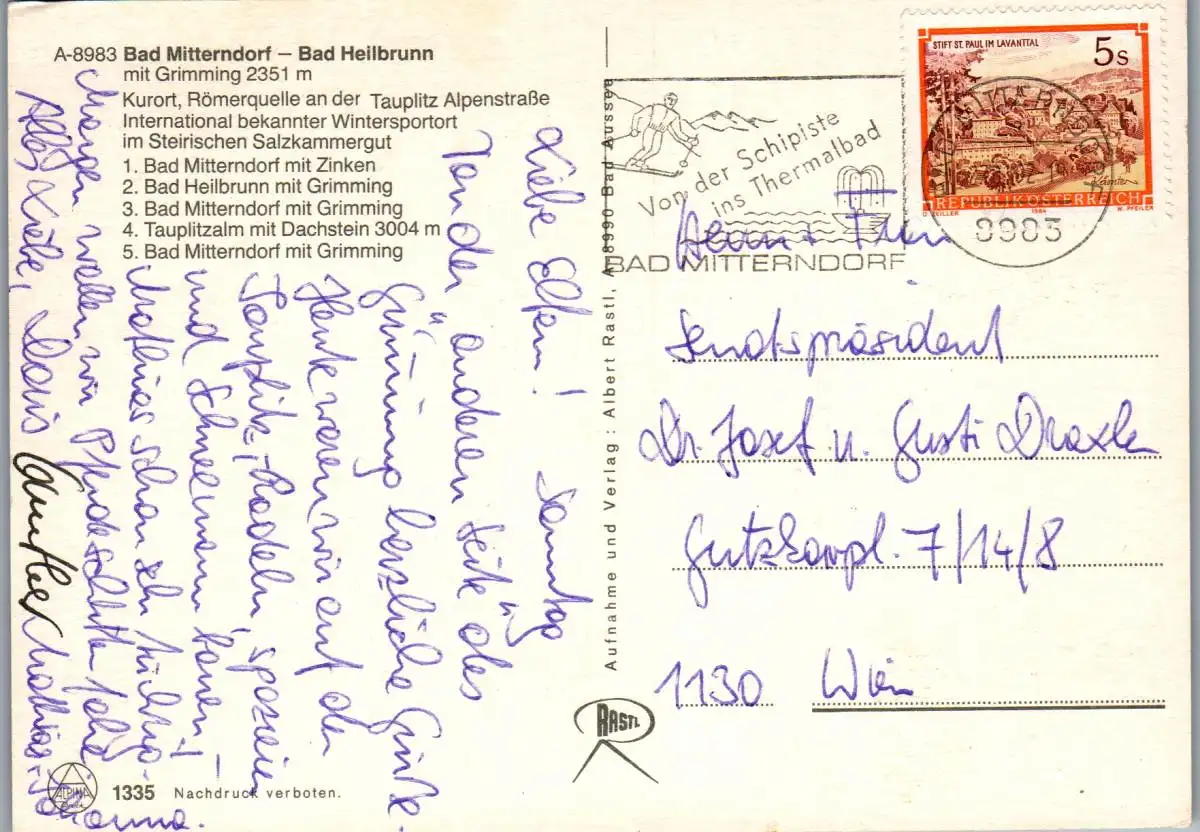 A-8983 Bad Mitterndorf – Bad Heilbrunn
mit Grimming 2351 m
Kurort, Römerquelle an der Tauplitz Alpenstraße
International bekannter Wintersportort
im Steirischen Salzkammergut
1. Bad Mitterndorf mit Zinken
2. Bad Heilbrunn mit Grimming
3. Bad Mitterndorf mit Grimming
4. Tauplitzalm mit Dachstein 3004 m
5. Bad Mitterndorf mit Grimming
Liebe Eltern! Samstag
Von der "anderen Seite des
Grimming" herzliche Grüße.
Heute waren wir auf der
Tauplitz, -Rodeln, spazieren
und Schneemann bauen! -
Mathias schon sehr
Morgen wollen wir Pferdeschlitten
Alles Liebe, Doris
Gunther Mathias +
Johanna.
1335 Nachdruck verboten.
ALPINA
Aufnahme und Verlag : Albert Rastl, A-8990 Bad Aussee
RASTL
Von der Schipiste
ins Thermalbad
BAD MITTERNDORF
8983
STIFT ST. PAUL IM LAVANTTAL
5s
Kärnten
REPUBLIK ÖSTERREICH
O. ZEILLER 1984 W. PFEILER
Herrn + Frau
Senatspräsident
Dr. Josef u. Gusti Draxler
7/14/8
1130 Wien